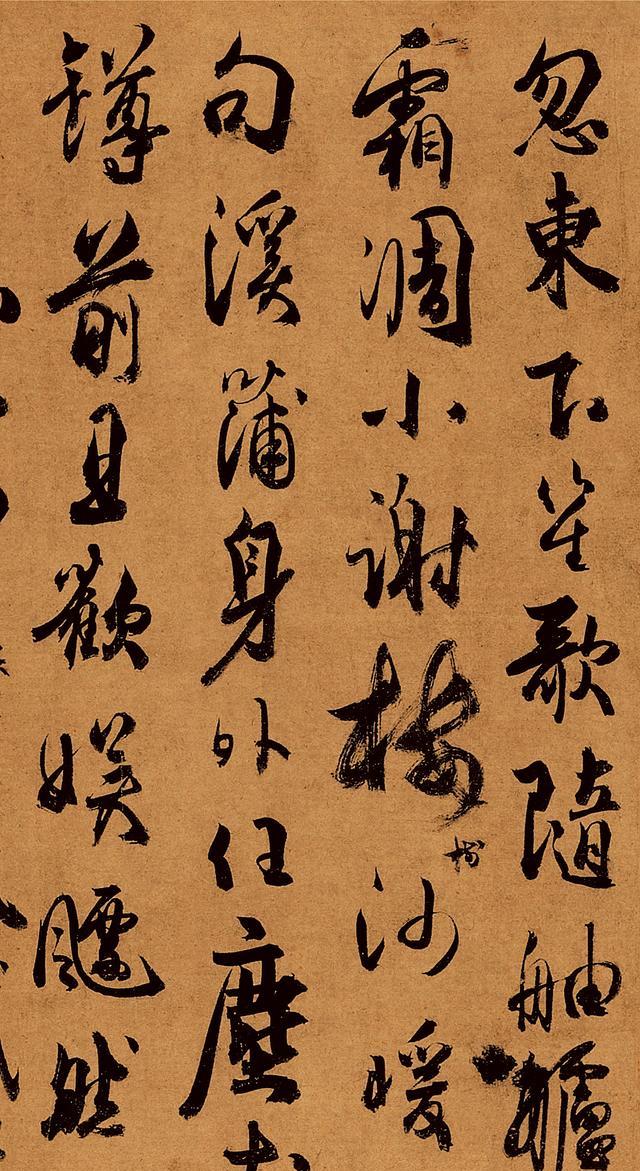 忽東下笙歌隨舳艫
霜凋小謝樓樹沙暖
句溪蒲身外任塵
罇前且歡娛飄然